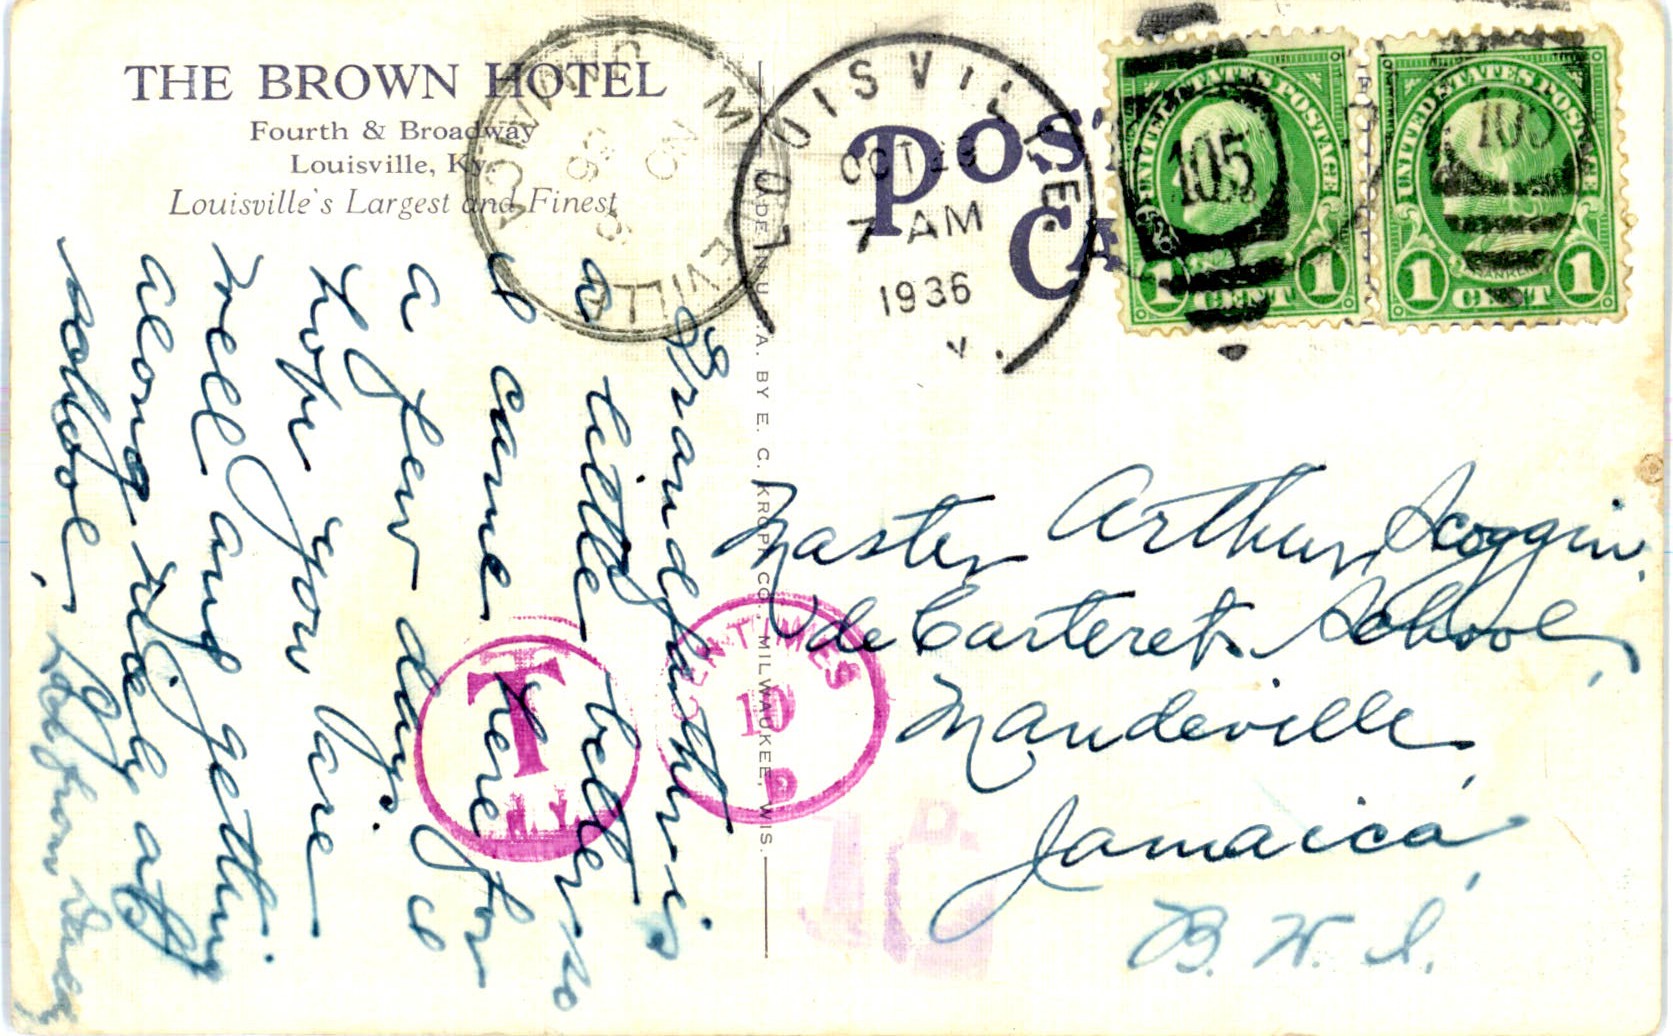 THE BROWN HOTEL
Fourth & Broadway
Louisville, Ky.
Louisville's Largest and Finest
Grandfather is
a little better so
I came here for
a few days. I
hope you are
well and getting
along nicely at
school,
POST
CA
MADE IN U.S.A. BY E. C. KROPP CO., MILWAUKEE, WIS.
LOUISVILLE
OCT
7 AM
1936
MANDEVILLE
UNITED STATES POSTAGE
105
1 CENT 1
UNITED STATES POSTAGE
105
1 CENT 1
Master Arthur Scoggin,
de Carteret School,
Mandeville,
Jamaica,
B. W. I.
T
N.Y.
CENTIMES
10